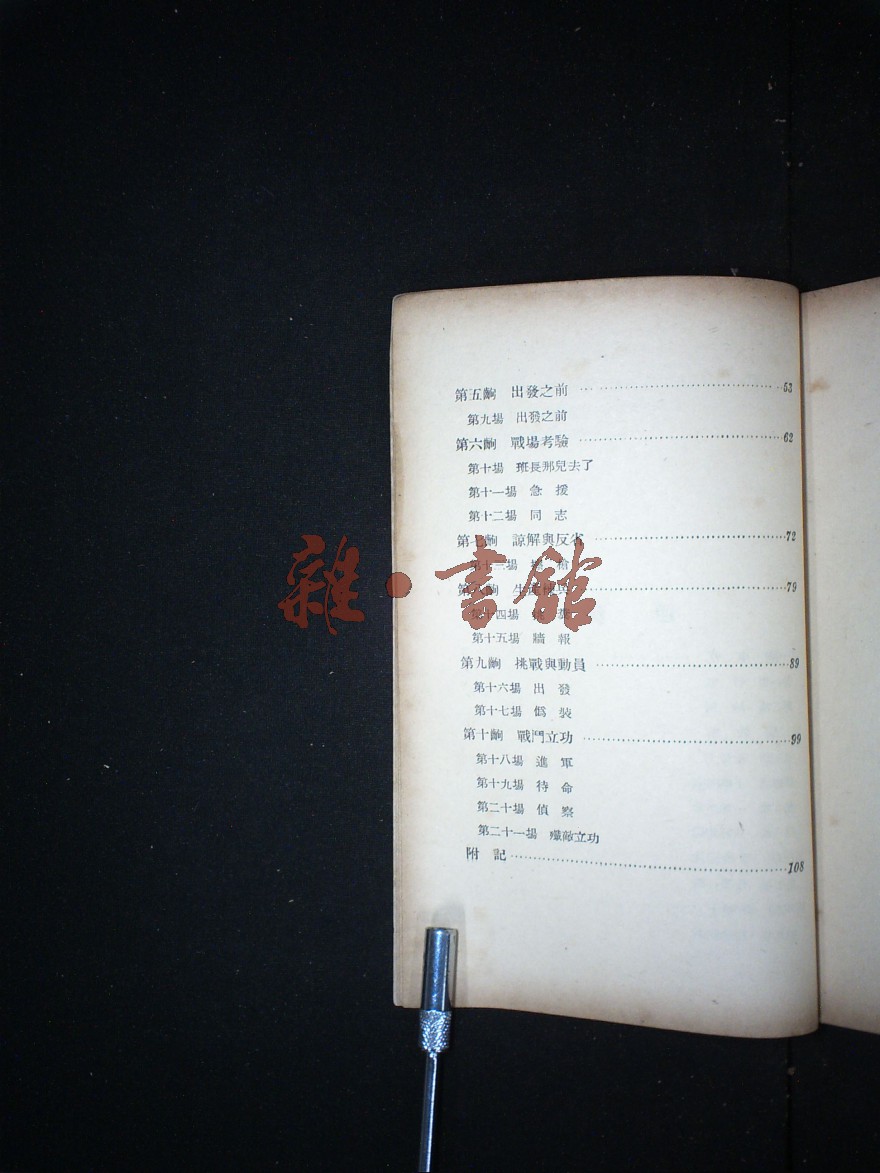 第五齣 出發之前 ……53
第九場 出發之前
第六齣 戰場考驗 ……62
第十場 班長那兒去了
第十一場 急援
第十二場 同志
第七齣 諒解與反省 ……72
第十三場
第八齣 生產 ……79
第十四場
第十五場 牆報
第九齣 挑戰與動員 ……89
第十六場 出發
第十七場 僞裝
第十齣 戰鬥立功 ……99
第十八場 進軍
第十九場 待命
第二十場 偵察
第二十一場 殲敵立功
附記 ……108
雜·書館